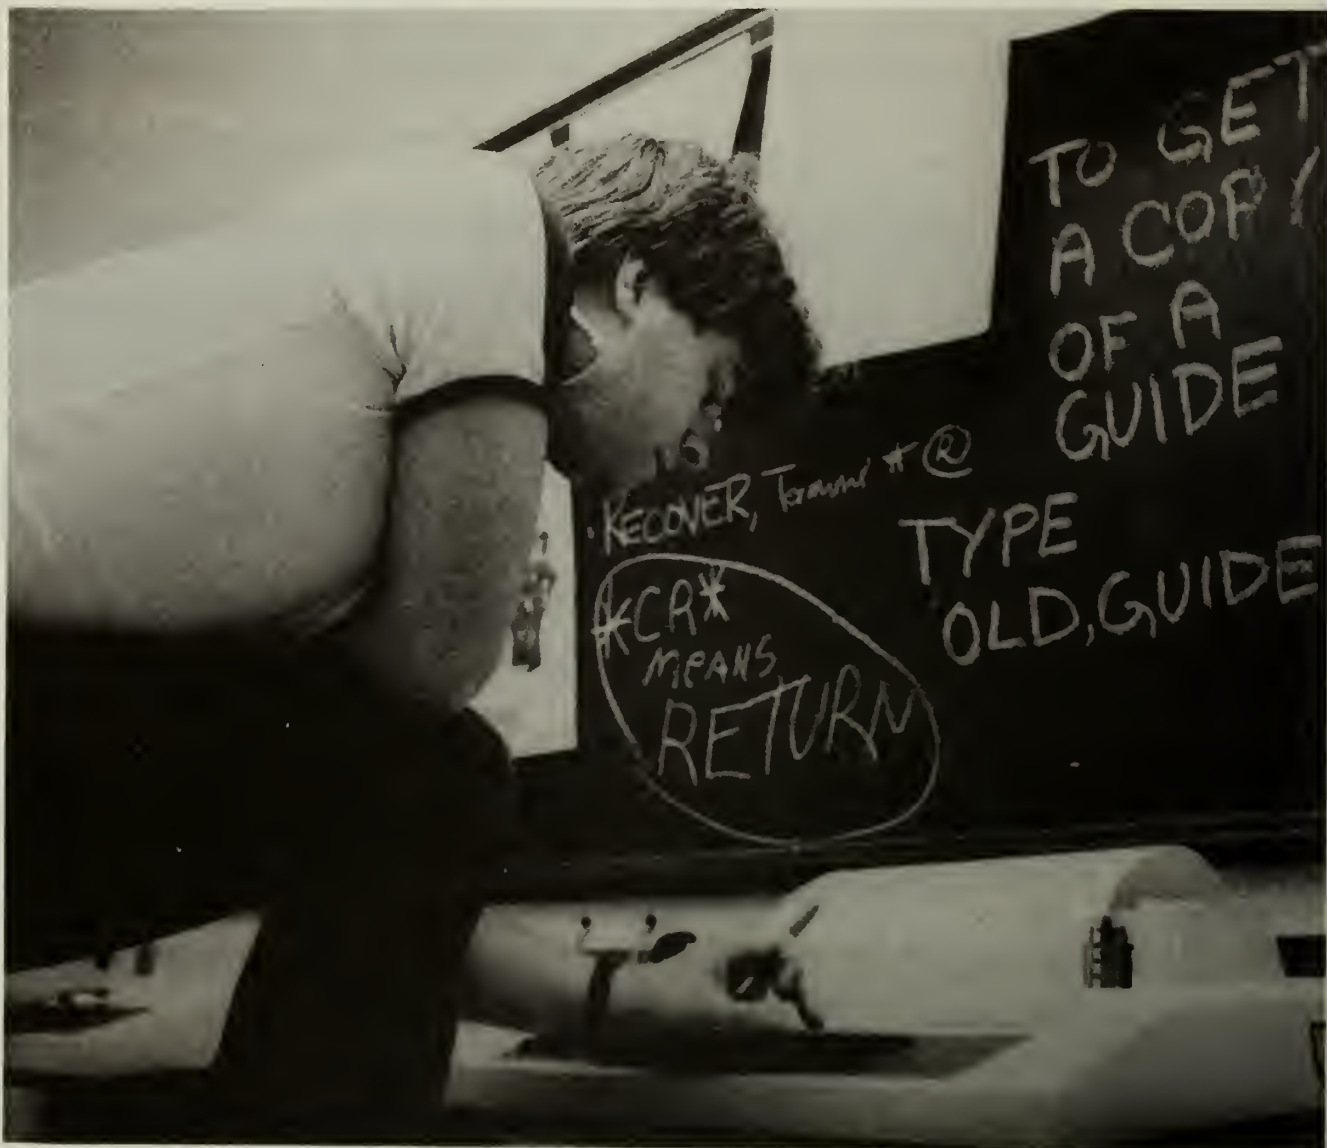 TO GET
A COPY
OF A
GUIDE
TYPE
OLD,GUIDE
RECOVER, * @
*CR*
MEANS
RETURN